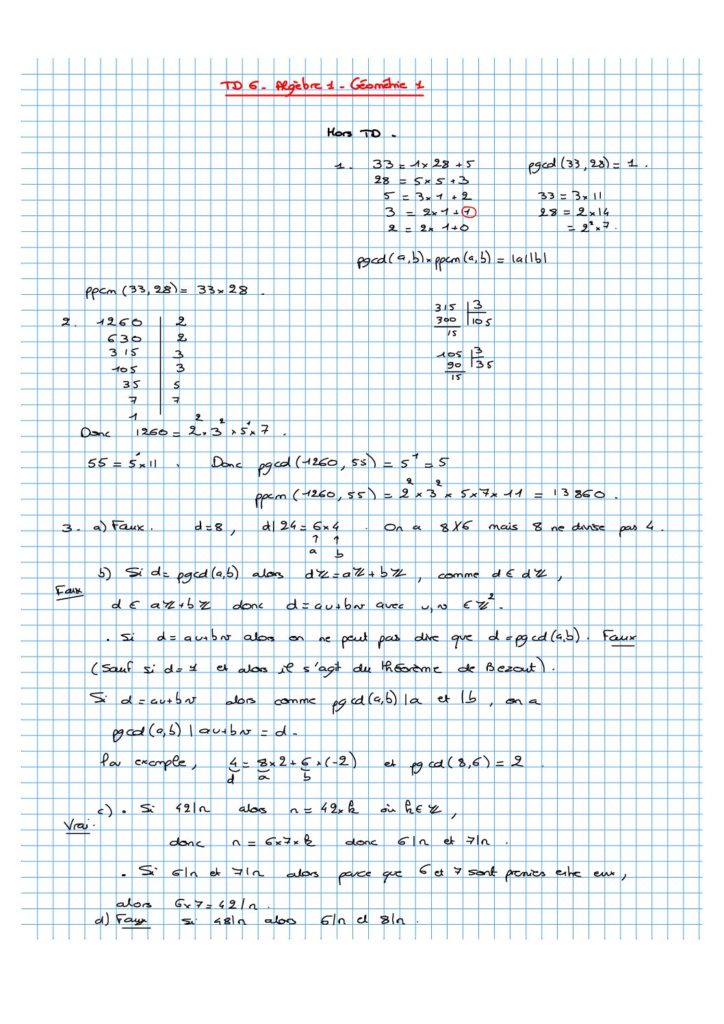 TD 6 - Algèbre 1 - Géométrie 1
Hors TD -
1. 33 = 1 x 28 + 5 pgcd (33, 28) = 1 .
28 = 5 x 5 + 3
5 = 3 x 1 + 2 33 = 3 x 11
3 = 2 x 1 + 1 28 = 2 x 14
2 = 2 x 1 + 0 = 2² x 7 .
pgcd (a, b) x ppcm (a, b) = |a||b|
ppcm (33, 28) = 33 x 28 .
2. 1260 | 2 315 | 3
630 | 2 300 | 105
315 | 3 15
105 | 3 105 | 3
35 | 5 90 | 35
7 | 7 15
1
Donc 1260 = 2² x 3² x 5¹ x 7 .
55 = 5¹ x 11 . Donc pgcd (1260, 55) = 5¹ = 5
ppcm (1260, 55) = 2² x 3² x 5 x 7 x 11 = 13860 .
3. a) Faux. d = 8 , d | 24 = 6 x 4 . On a 8 X 6 mais 8 ne divise pas 4 .
↑ ↑
a b
b) Si d = pgcd (a, b) alors dℤ = aℤ + bℤ , comme d ∈ dℤ ,
Faux
d ∈ aℤ + bℤ donc d = au + bv avec u, v ∈ ℤ² .
. Si d = au + bv alors on ne peut pas dire que d = pgcd (a, b) . Faux
(Sauf si d = 1 et alors il s'agit du théorème de Bezout) .
Si d = au + bv alors comme pgcd (a, b) | a et | b , on a
pgcd (a, b) | au + bv = d -
Par exemple, 4 = 8 x 2 + 6 x (-2) et pgcd (8, 6) = 2 .
d a b
c) . Si 42 | n alors n = 42 x k où k ∈ ℤ ,
Vrai .
donc n = 6 x 7 x k donc 6 | n et 7 | n .
. Si 6 | n et 7 | n alors parce que 6 et 7 sont premiers entre eux ,
alors 6 x 7 = 42 | n .
d) Faux si 48 | n alors 6 | n et 8 | n .